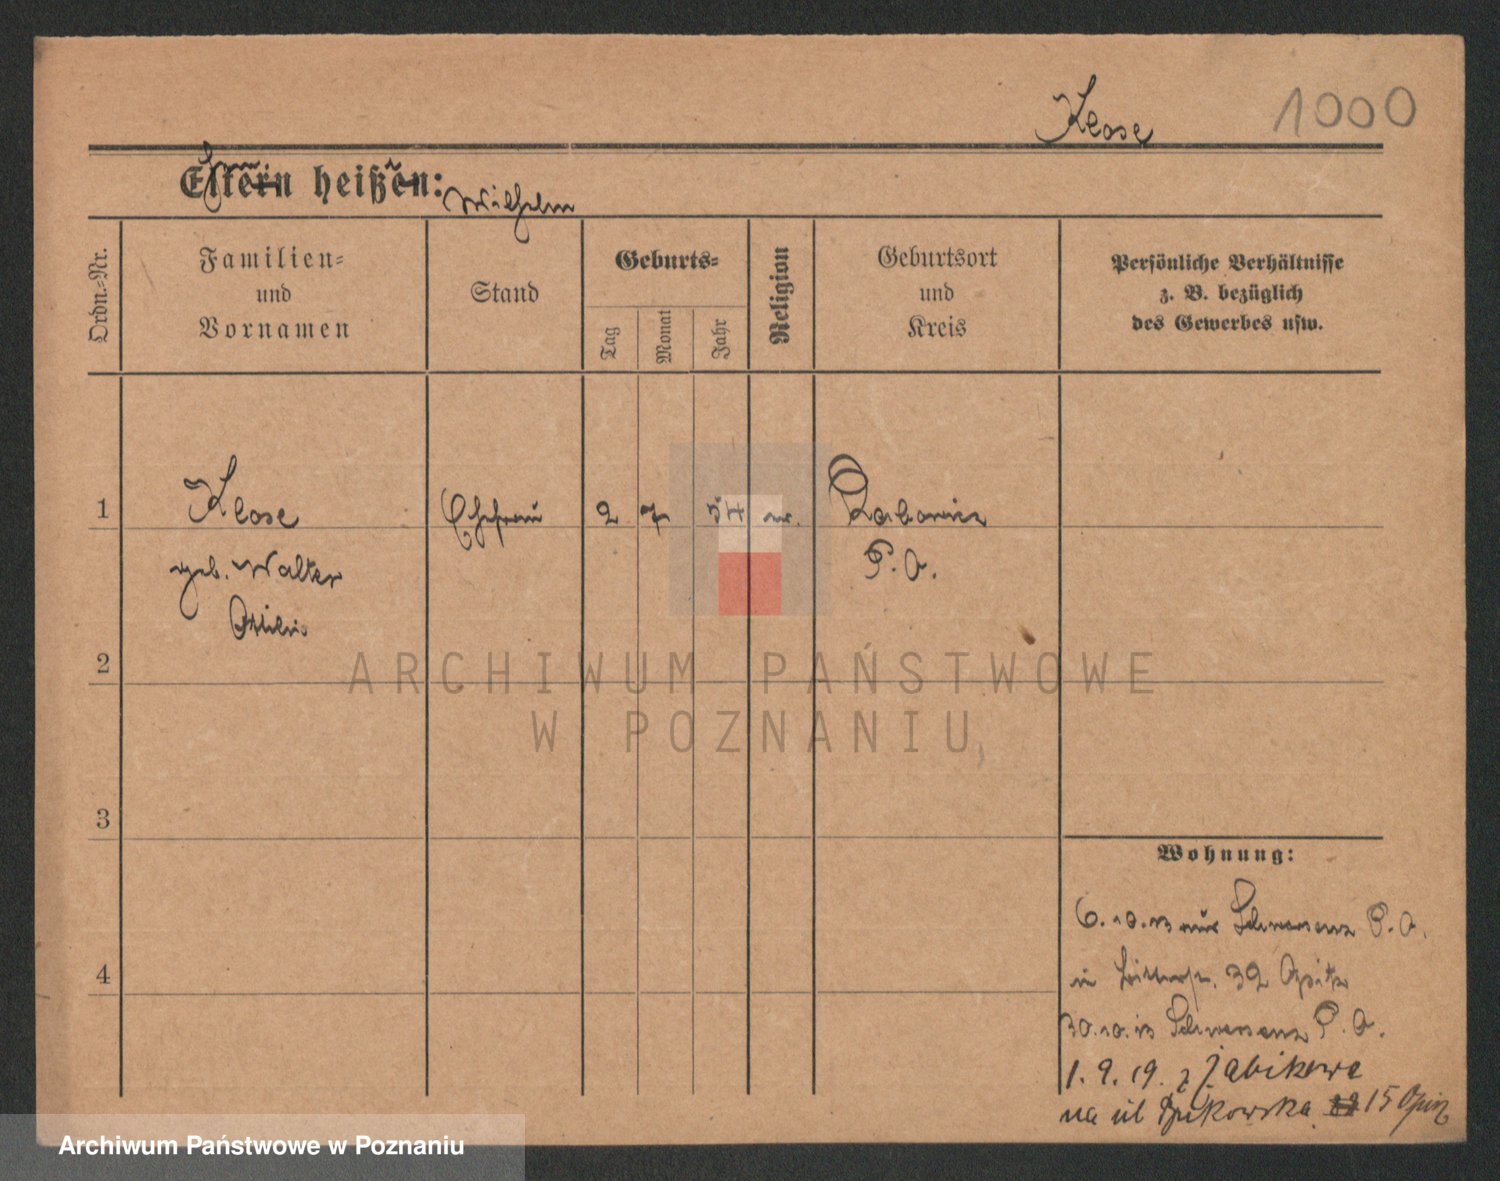 Klose 1000
Eltern heißen: Wilhelm
Ordn.-Nr.
Familien-
und
Vornamen
Stand
Geburts-
Tag
Monat
Jahr
Religion
Geburtsort
und
Kreis
Persönliche Verhältnisse
z. B. bezüglich
des Gewerbes usw.
1 Klose Ehefrau 2 7 54
geb. Walter P. O.
2
ARCHIWUM PAŃSTWOWE
W POZNANIU
3
Wohnung:
6.10.13 Schwersenz P. O.
4
in 32 Opitz
30.10.13 Schwersenz P. O.
1. 9. 19. z Żabikowa
na ul Bukowska 15
Archiwum Państwowe w Poznaniu